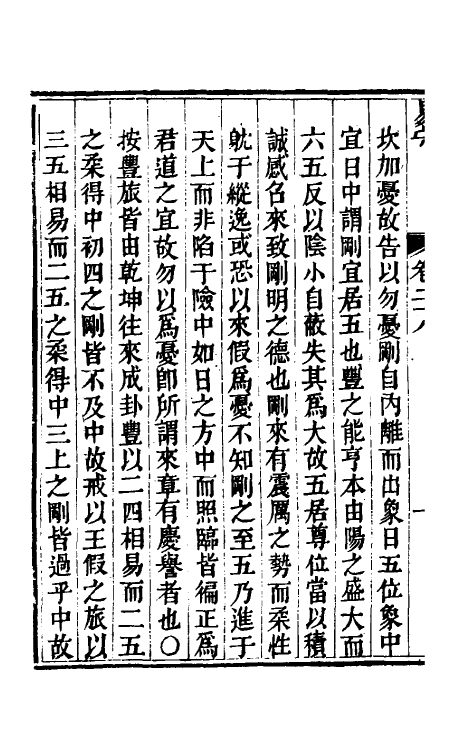 卷二十八
坎加憂故告以勿憂剛自內離而出象日五位象中
宜日中謂剛宜居五也豐之能亨本由陽之盛大而
六五反以陰小自蔽失其為大故五居尊位當以積
誠感名來致剛明之德也剛來有震厲之勢而柔性
躭于縱逸或恐以來假為憂不知剛之至五乃進于
天上而非陷于險中如日之方中而照臨皆徧正為
君道之宜故勿以為憂卽所謂來章有慶譽者也○
按豐旅皆由乾坤往來成卦豐以二四相易而二五
之柔得中初四之剛皆不及中故戒以王假之旅以
三五相易而二五之柔得中三上之剛皆過乎中故